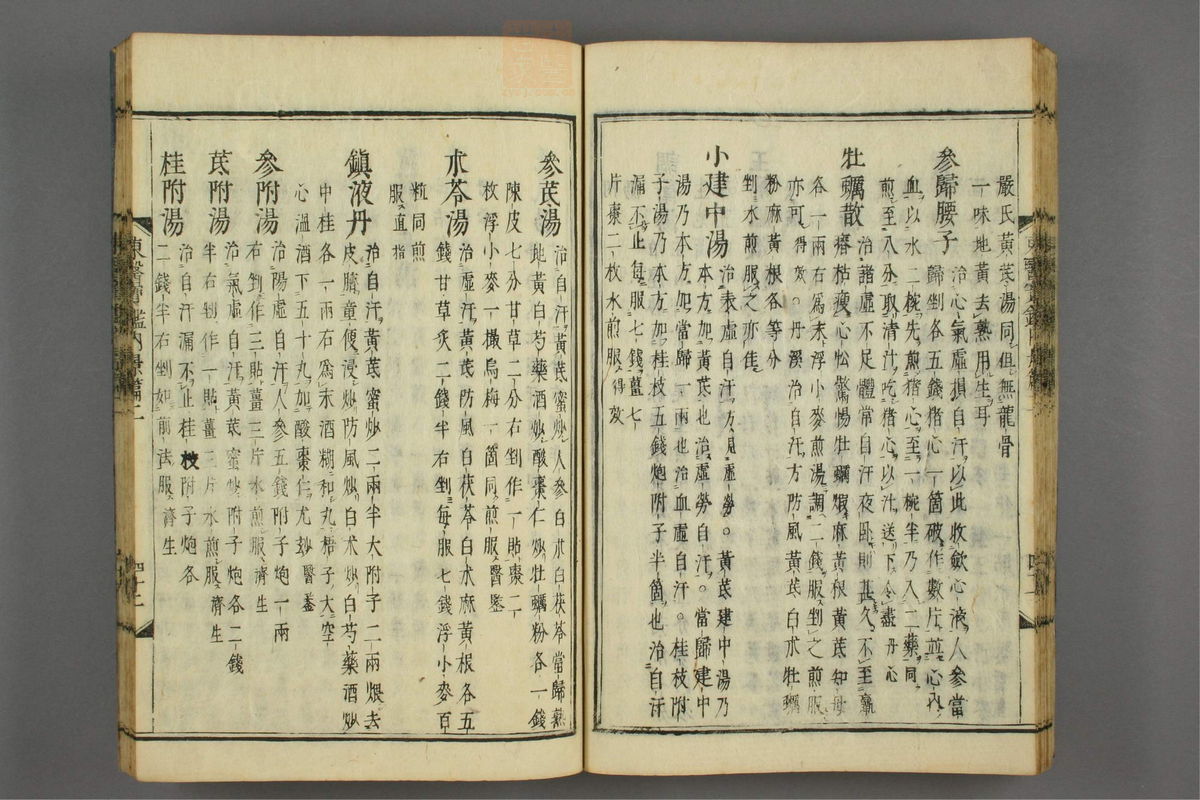 嚴氏黃芪湯同但無龍骨
一味地黃去熟用生耳
參歸腰子 治心氣虛損自汗以此收斂心液人參當
歸剉各五錢猪心一箇破作數片並心內
血以水二椀先煎猪心至一椀半乃入二藥同
煎至八分取清汁吃猪心以汁送下令盡 丹心
牡礪散 治諸虛不足體常自汗夜臥則甚久不至羸
瘠枯瘦心忪驚惕牡礪煅麻黃根黃芪知母
各一兩右爲末浮小麥煎湯調二錢服剉之煎服
亦可 得效。丹溪治自汗方防風黃芪白朮牡礪
粉麻黃根各等分
剉水煎服之亦佳
小建中湯 治表虛自汗方見虛勞。黃芪建中湯乃
本方加黃芪也治虛勞自汗。當歸建中
湯乃本方加當歸一兩也治血虛自汗。桂枝附
子湯乃本方加桂枝五錢炮附子半箇也治自汗
漏不止每服七錢薑七
片棗二枚水煎服 得效
東醫寶鑑內景篇二 四十一
參芪湯 治自汗黃芪蜜炒人參白朮白茯苓當歸熟
地黃白芍藥酒炒酸棗仁炒牡礪粉各一錢
陳皮七分甘草二分右剉作一貼棗二
枚浮小麥一撮烏梅一箇同煎服 醫鑒
朮苓湯 治虛汗黃芪防風白茯苓白朮麻黃根各五
錢甘草炙二錢半右剉每服七錢浮小麥百
粒同煎
服 直指
鎭液丹 治自汗黃芪蜜炒二兩半大附子二兩煨去
皮臍童便浸炒防風炒白朮炒白芍藥酒炒
中桂各一兩右爲末酒糊和丸梧子大空
心溫酒下五十丸加酸棗仁尤妙 醫鑒
參附湯 治陽虛自汗人參五錢附子炮一兩
右剉作三貼薑三片水煎服 濟生
芪附湯 治氣虛自汗黃芪蜜炒附子炮各二錢
半右剉作一貼薑三片水煎服 濟生
桂附湯 治自汗漏不止桂枝附子炮各
二錢半右剉如前法服 濟生
東醫寶鑑內景篇二 四十二